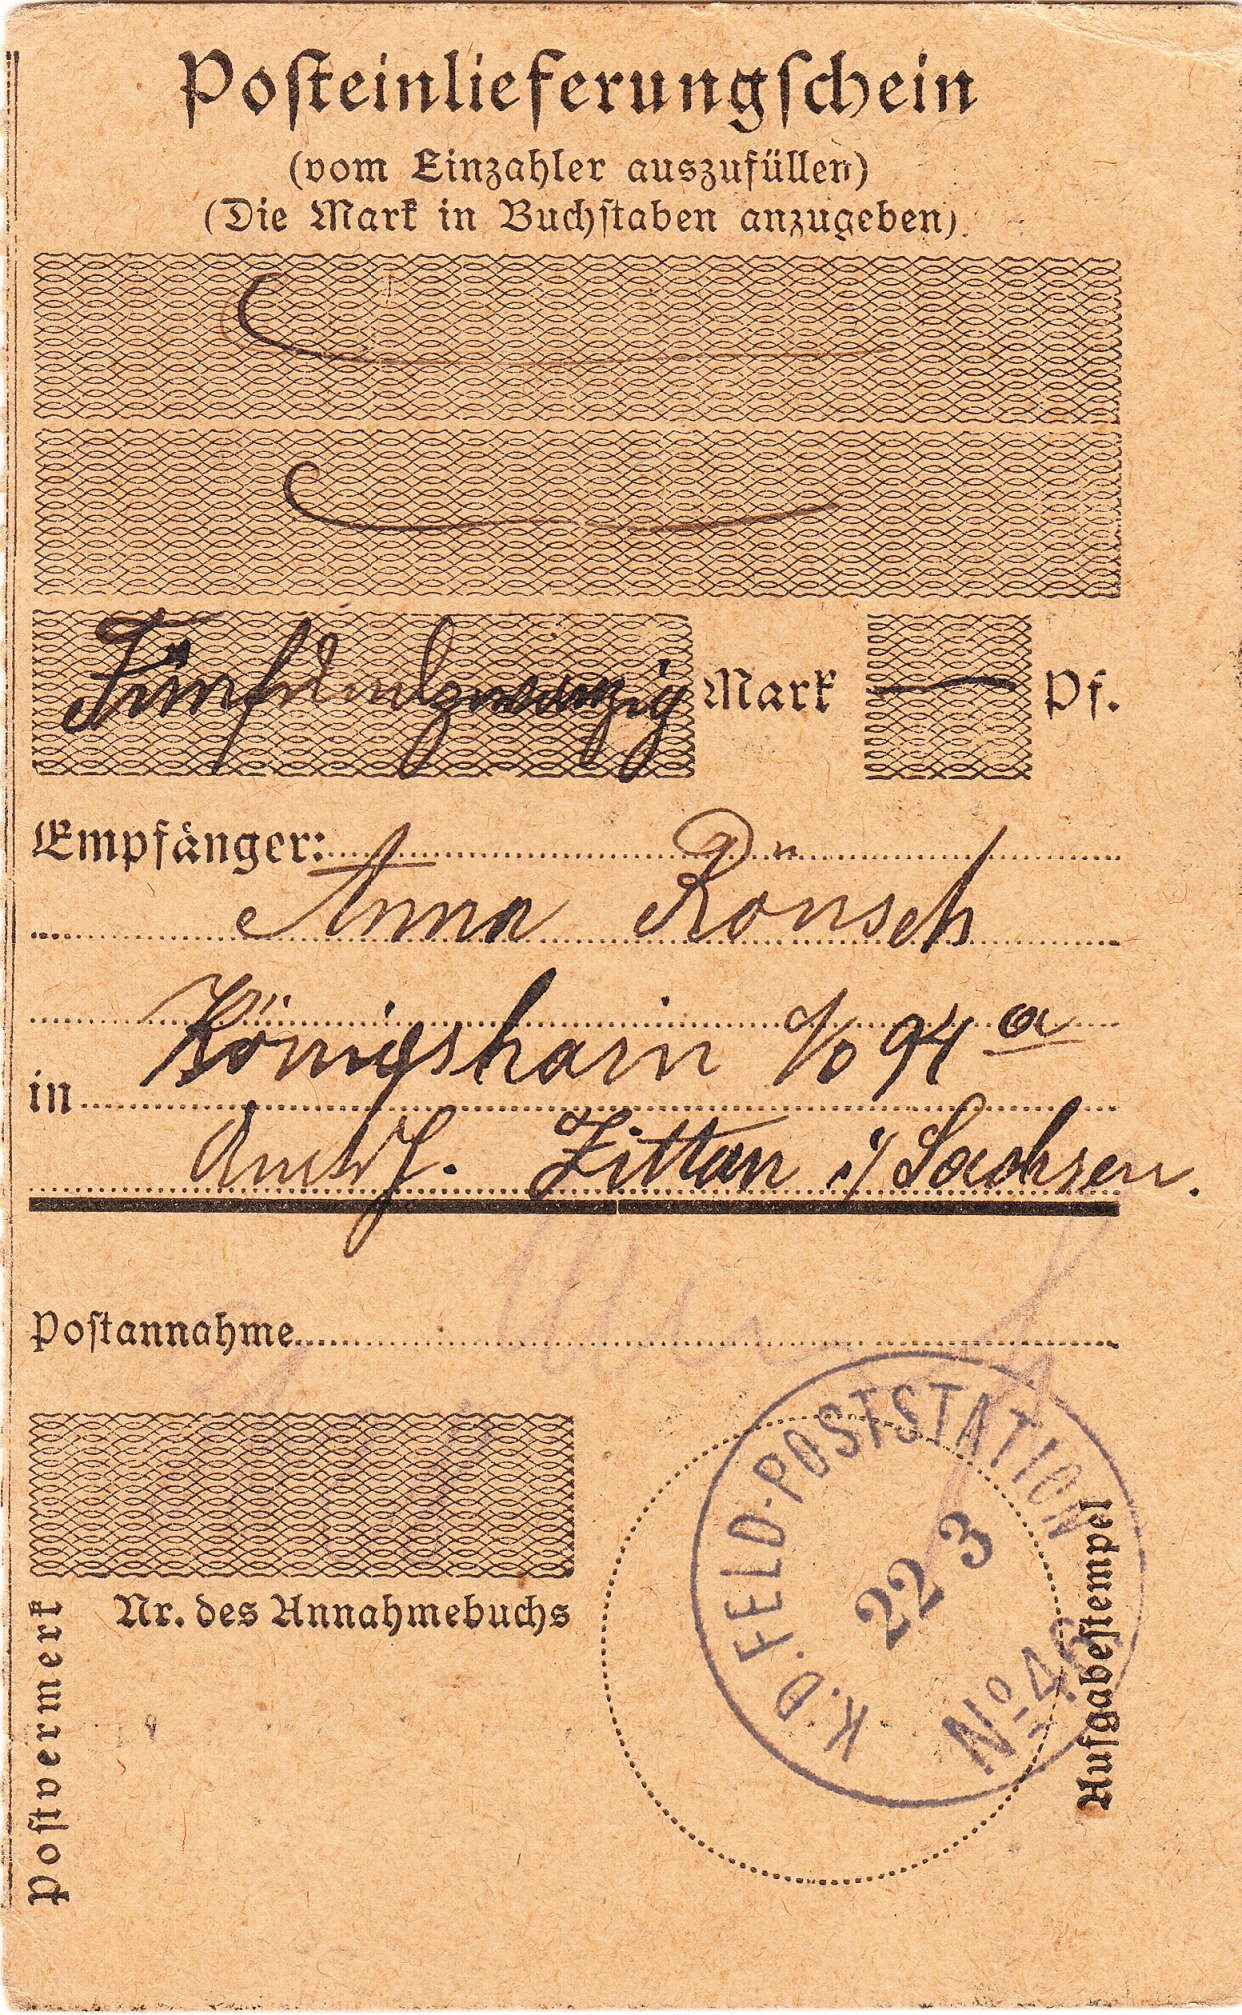 Posteinlieferungschein
(vom Einzahler auszufüllen)
(Die Mark in Buchstaben anzugeben)
Fünfundzwanzig Mark — Pf.
Empfänger:
Anna Rönsch
Königshain % 94 a
in
Amtsh. Zittau i/Sachsen.
Postannahme
Nr. des Annahmebuchs
Postvermerk
K.D. FELD-POSTSTATION
22 3
No 46
Aufgabestempel